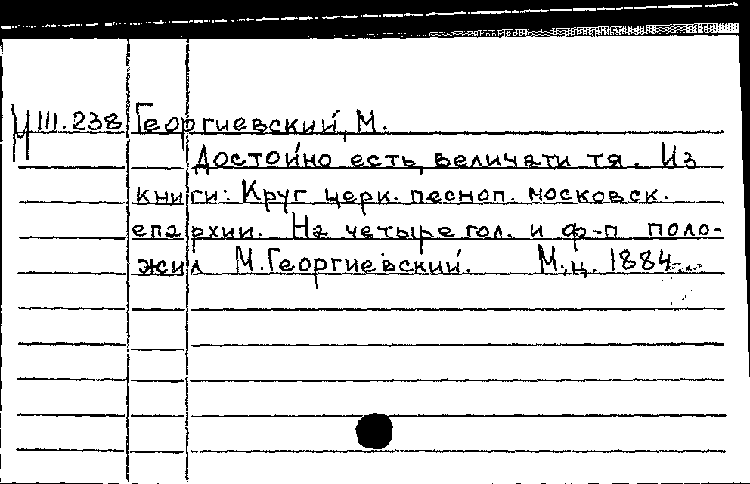 М III.238 Георгиевский, М.
Достойно есть, величати тя. Из
книги: Круг церк. песноп. московск.
епархии. На четыре гол. и ф-п поло-
жил М.Георгиевский. М., ц. 1884